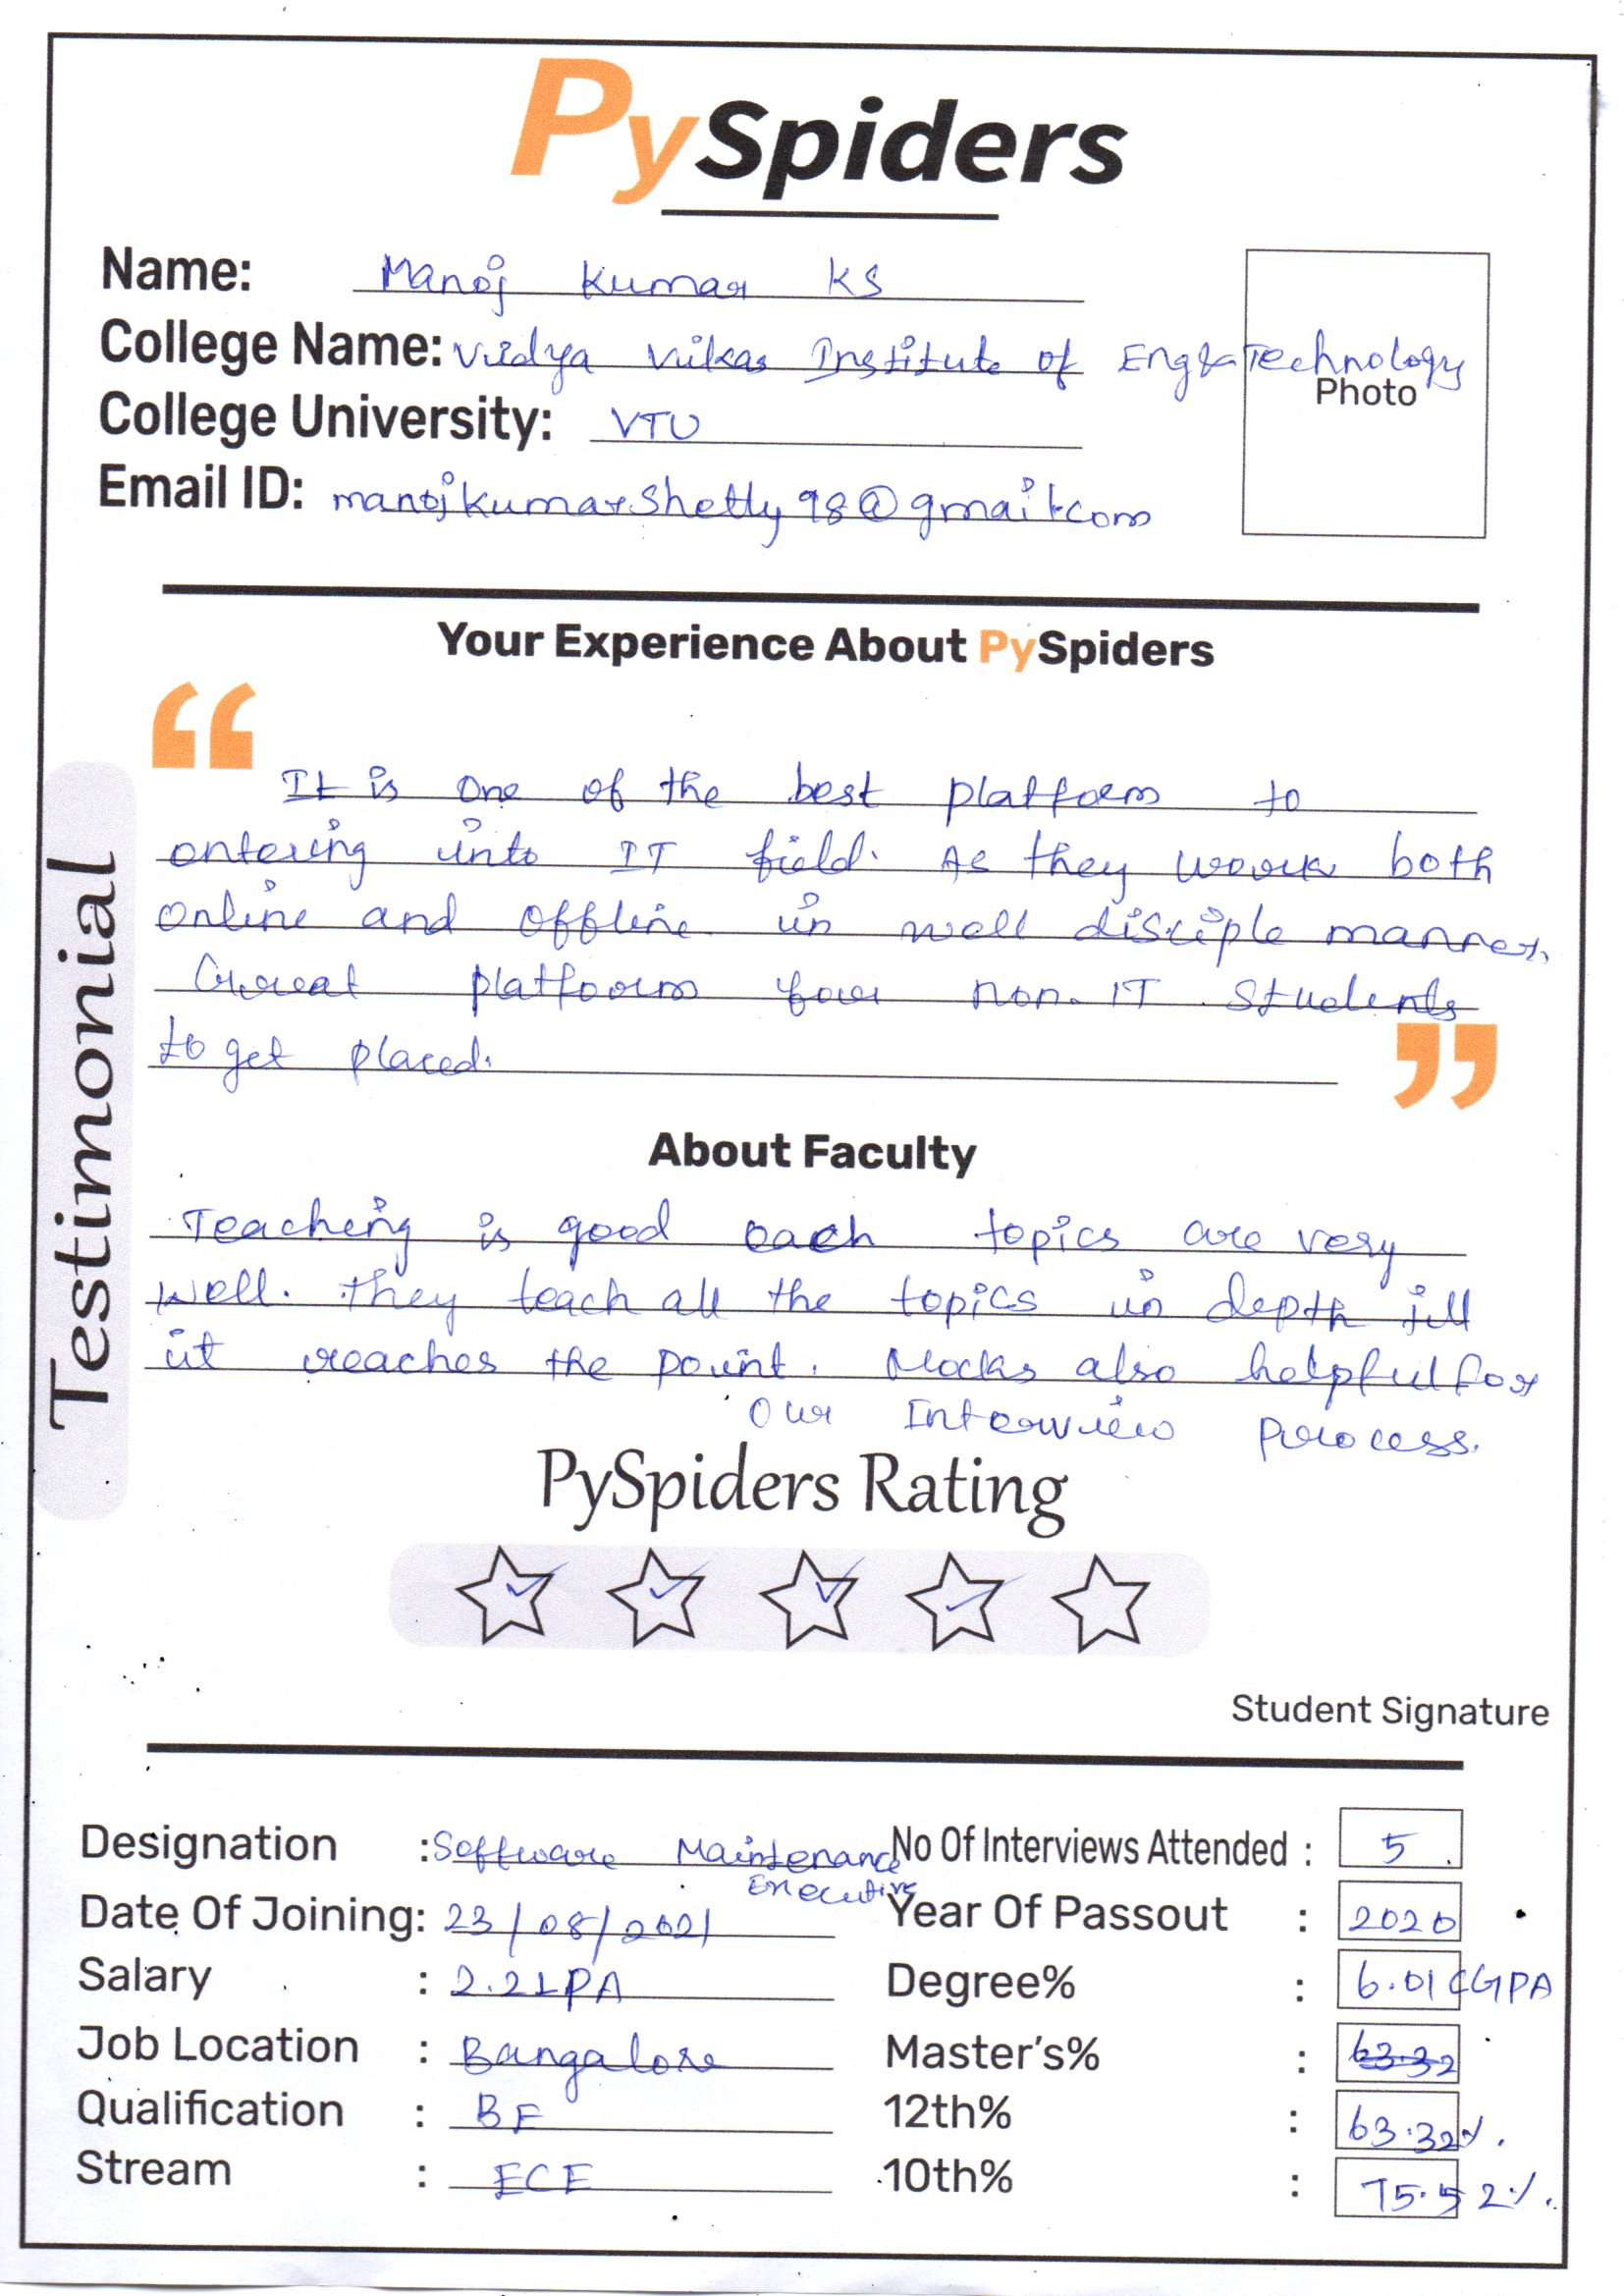 PySpiders
Name: Manoj Kumar KS
College Name: Vidya Vikas Institute of Eng & Technology
Photo
College University: VTU
Email ID: manojkumarshetty98@gmail.com
Your Experience About PySpiders
“
It is one of the best platform to
entering into IT field. As they work both
online and offline in well disciple manner.
Great platform for non-IT students
to get placed.
”
Testimonial
About Faculty
Teaching is good each topics are very
well. They teach all the topics in depth till
it reaches the point. Mocks also helpful for
our Interview process.
PySpiders Rating
Student Signature
Designation : Software Maintenance Executive
No Of Interviews Attended : 5
Date Of Joining: 23/08/2021
Year Of Passout : 2020
Salary : 2.2LPA
Degree% : 6.01 CGPA
Job Location : Bangalore
Master's% : 63.32
Qualification : BE
12th% : 63.32%.
Stream : ECE
10th% : 75.52%.